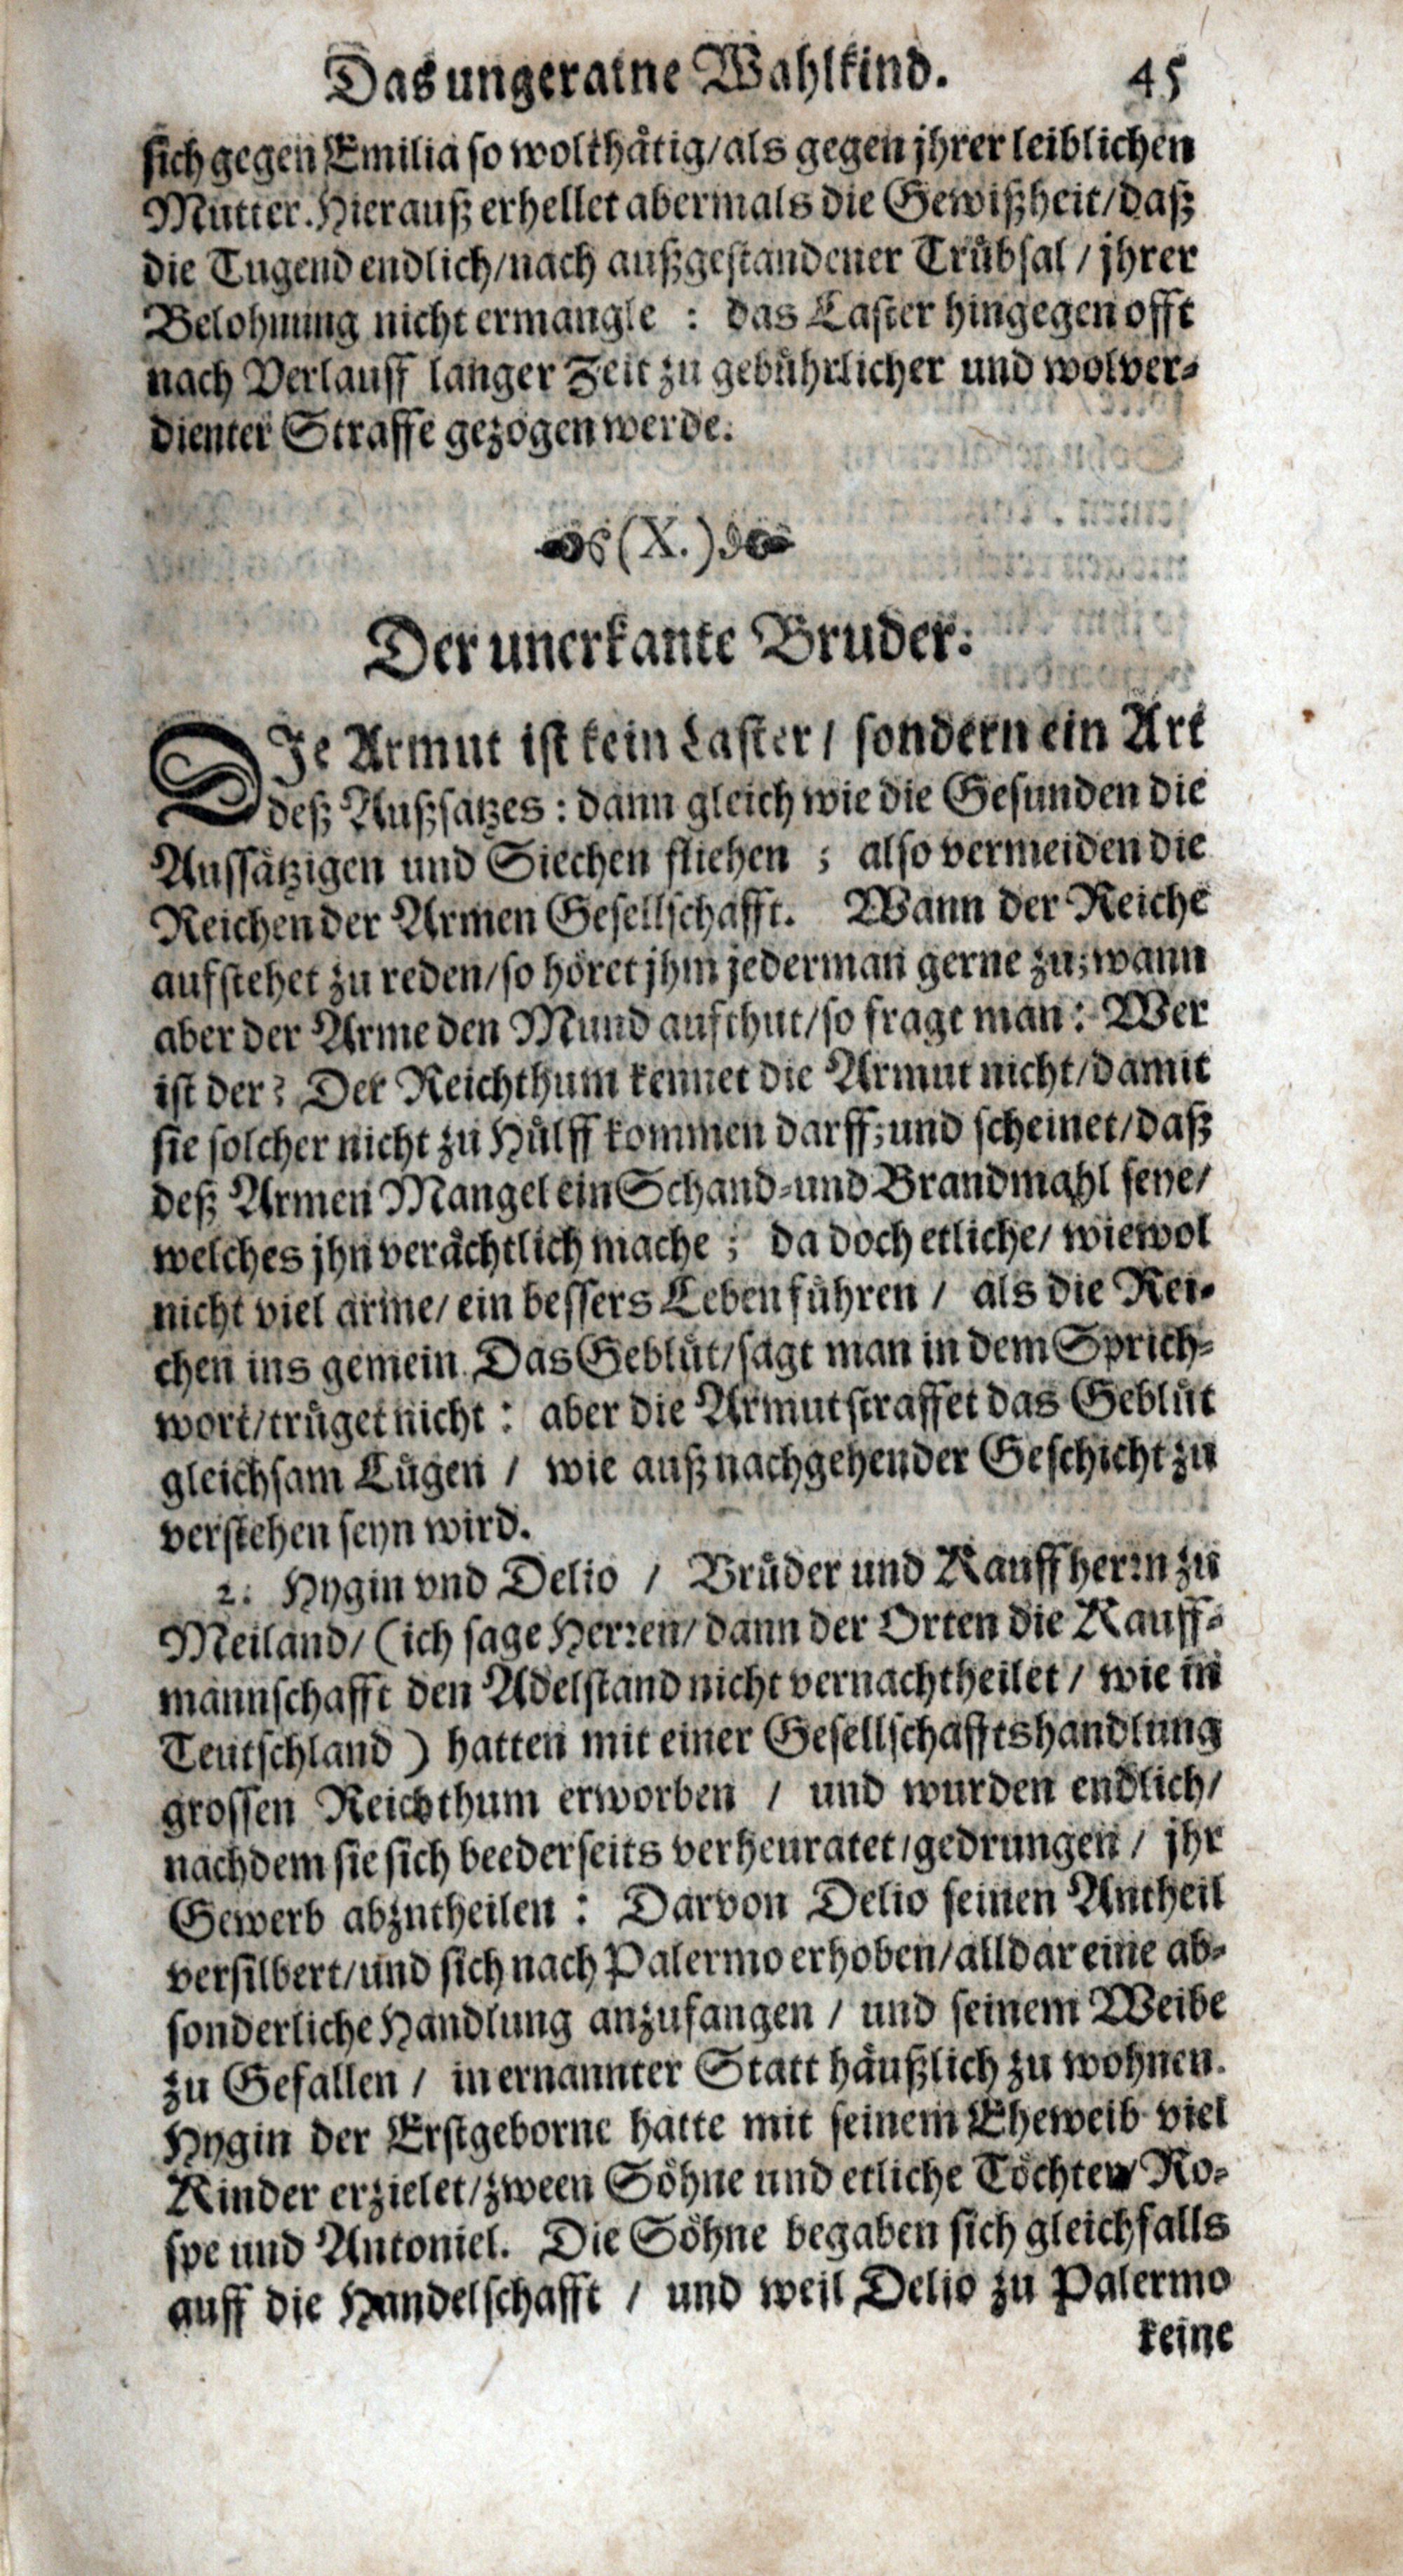 Das ungeratne Wahlkind. 45
sich gegen Emilia so wolthätig/als gegen jhrer leiblichen
Mutter. Hierauß erhellet abermals die Gewißheit/daß
die Tugend endlich/nach außgestandener Trübsal / jhrer
Belohnung nicht ermangle : das Laster hingegen offt
nach Verlauff langer Zeit zu gebührlicher und wolver-
dienter Straffe gezogen werde.
(X.)
Der unerkante Bruder.
DIe Armut ist kein Laster / sondern ein Art
deß Außsatzes : dann gleich wie die Gesunden die
Aussätzigen und Siechen fliehen ; also vermeiden die
Reichen der Armen Gesellschafft. Wann der Reiche
aufstehet zu reden/so höret jhm jederman gerne zu; wann
aber der Arme den Mund aufthut/so fragt man : Wer
ist der? Der Reichthum kennet die Armut nicht/damit
sie solcher nicht zu Hülff kommen darff; und scheinet/daß
deß Armen Mangel ein Schand-und Brandmahl seye/
welches jhn verächtlich mache ; da doch etliche/ wiewol
nicht viel arme/ ein bessers Leben führen / als die Rei-
chen ins gemein. Das Geblüt/sagt man in dem Sprich-
wort/trüget nicht : aber die Armut straffet das Geblüt
gleichsam Lügen / wie auß nachgehender Geschicht zu
verstehen seyn wird.
2. Hygin vnd Delio / Brüder und Kauffherrn zu
Meiland/ (ich sage Herren/ dann der Orten die Kauff-
mannschafft den Adelstand nicht vernachtheilet / wie in
Teutschland ) hatten mit einer Gesellschafftshandlung
grossen Reichthum erworben / und wurden endlich/
nachdem sie sich beederseits verheuratet/gedrungen / jhr
Gewerb abzutheilen : Darvon Delio seinen Antheil
versilbert/und sich nach Palermo erhoben/alldar eine ab-
sonderliche Handlung anzufangen / und seinem Weibe
zu Gefallen / in ernannter Statt häußlich zu wohnen.
Hygin der Erstgeborne hatte mit seinem Eheweib viel
Kinder erzielet/zween Söhne und etliche Töchter/ Ro-
spe und Antoniel. Die Söhne begaben sich gleichfalls
auff die Handelschafft / und weil Delio zu Palermo
keine